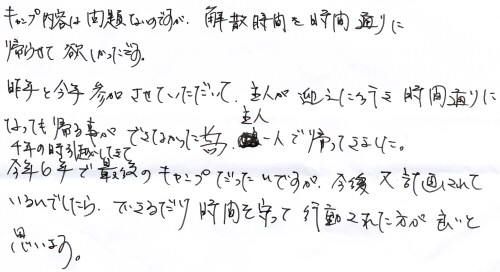 キャンプ内容は問題ないのですが、解散時間を時間通りに
帰らせて欲しかったです。
昨年と今年参加させていただいて、主人が迎えに行っても時間通りに
なっても帰る事ができなかった為、主人一人で帰ってきました。
4年の時引越してきて
今年6年で最後のキャンプだったんですが、今後又計画されて
いるんでしたら、できるだけ時間を守って行動された方が良いと
思います。